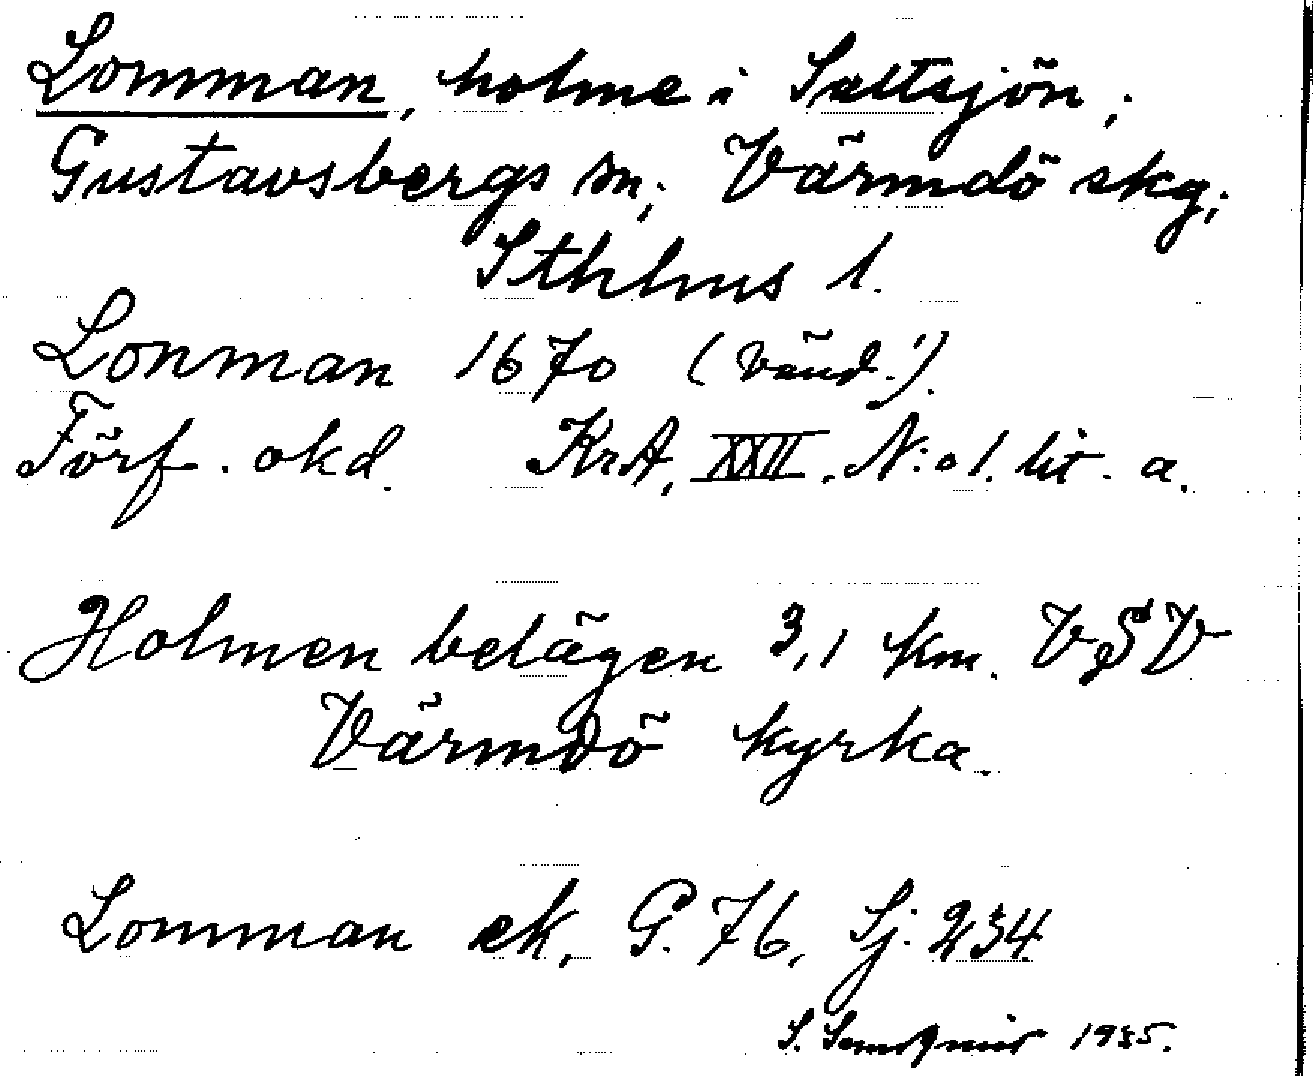 Lomman, holme i Saltsjön,
Gustavsbergs sn; Värmdö skg;
Sthlms l.
Lonman 1670 (vänd!).
Förf. okd. KrA, XXII, N:o 1. lit. a.
Holmen belägen 3,1 km. VSV
Värmdö kyrka.
Lomman ek, G. 76, Sj. 234
S. 1935.